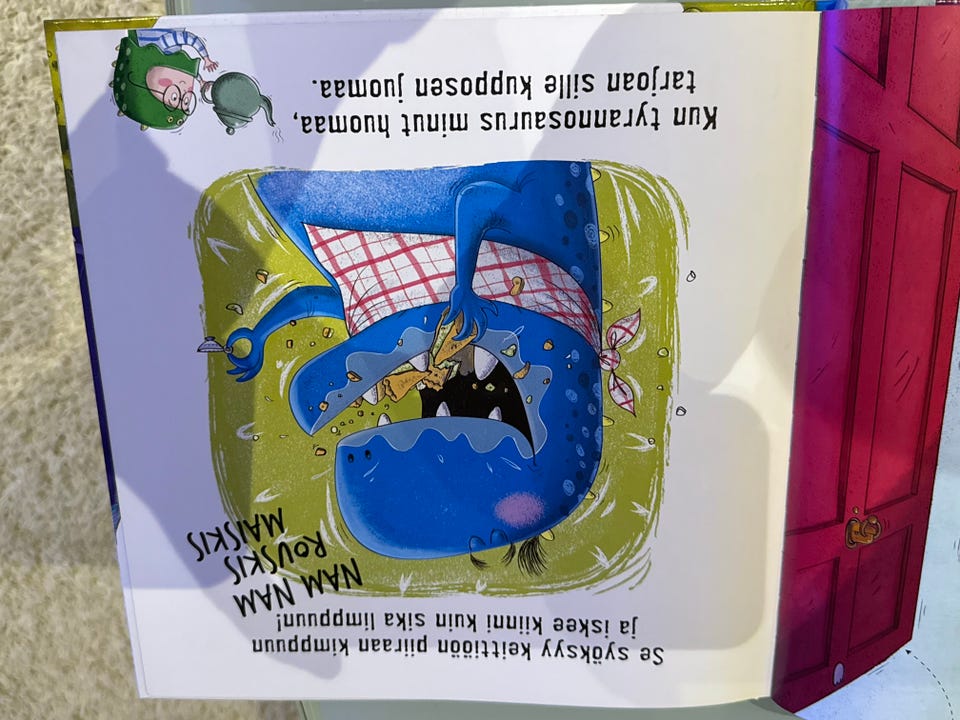 Se syöksyy keittiöön piiraan kimppuun
ja iskee kiinni kuin sika limppuun!
NAM NAM
ROUSKIS
MAISKIS
Kun tyrannosaurus minut huomaa,
tarjoan sille kupposen juomaa.